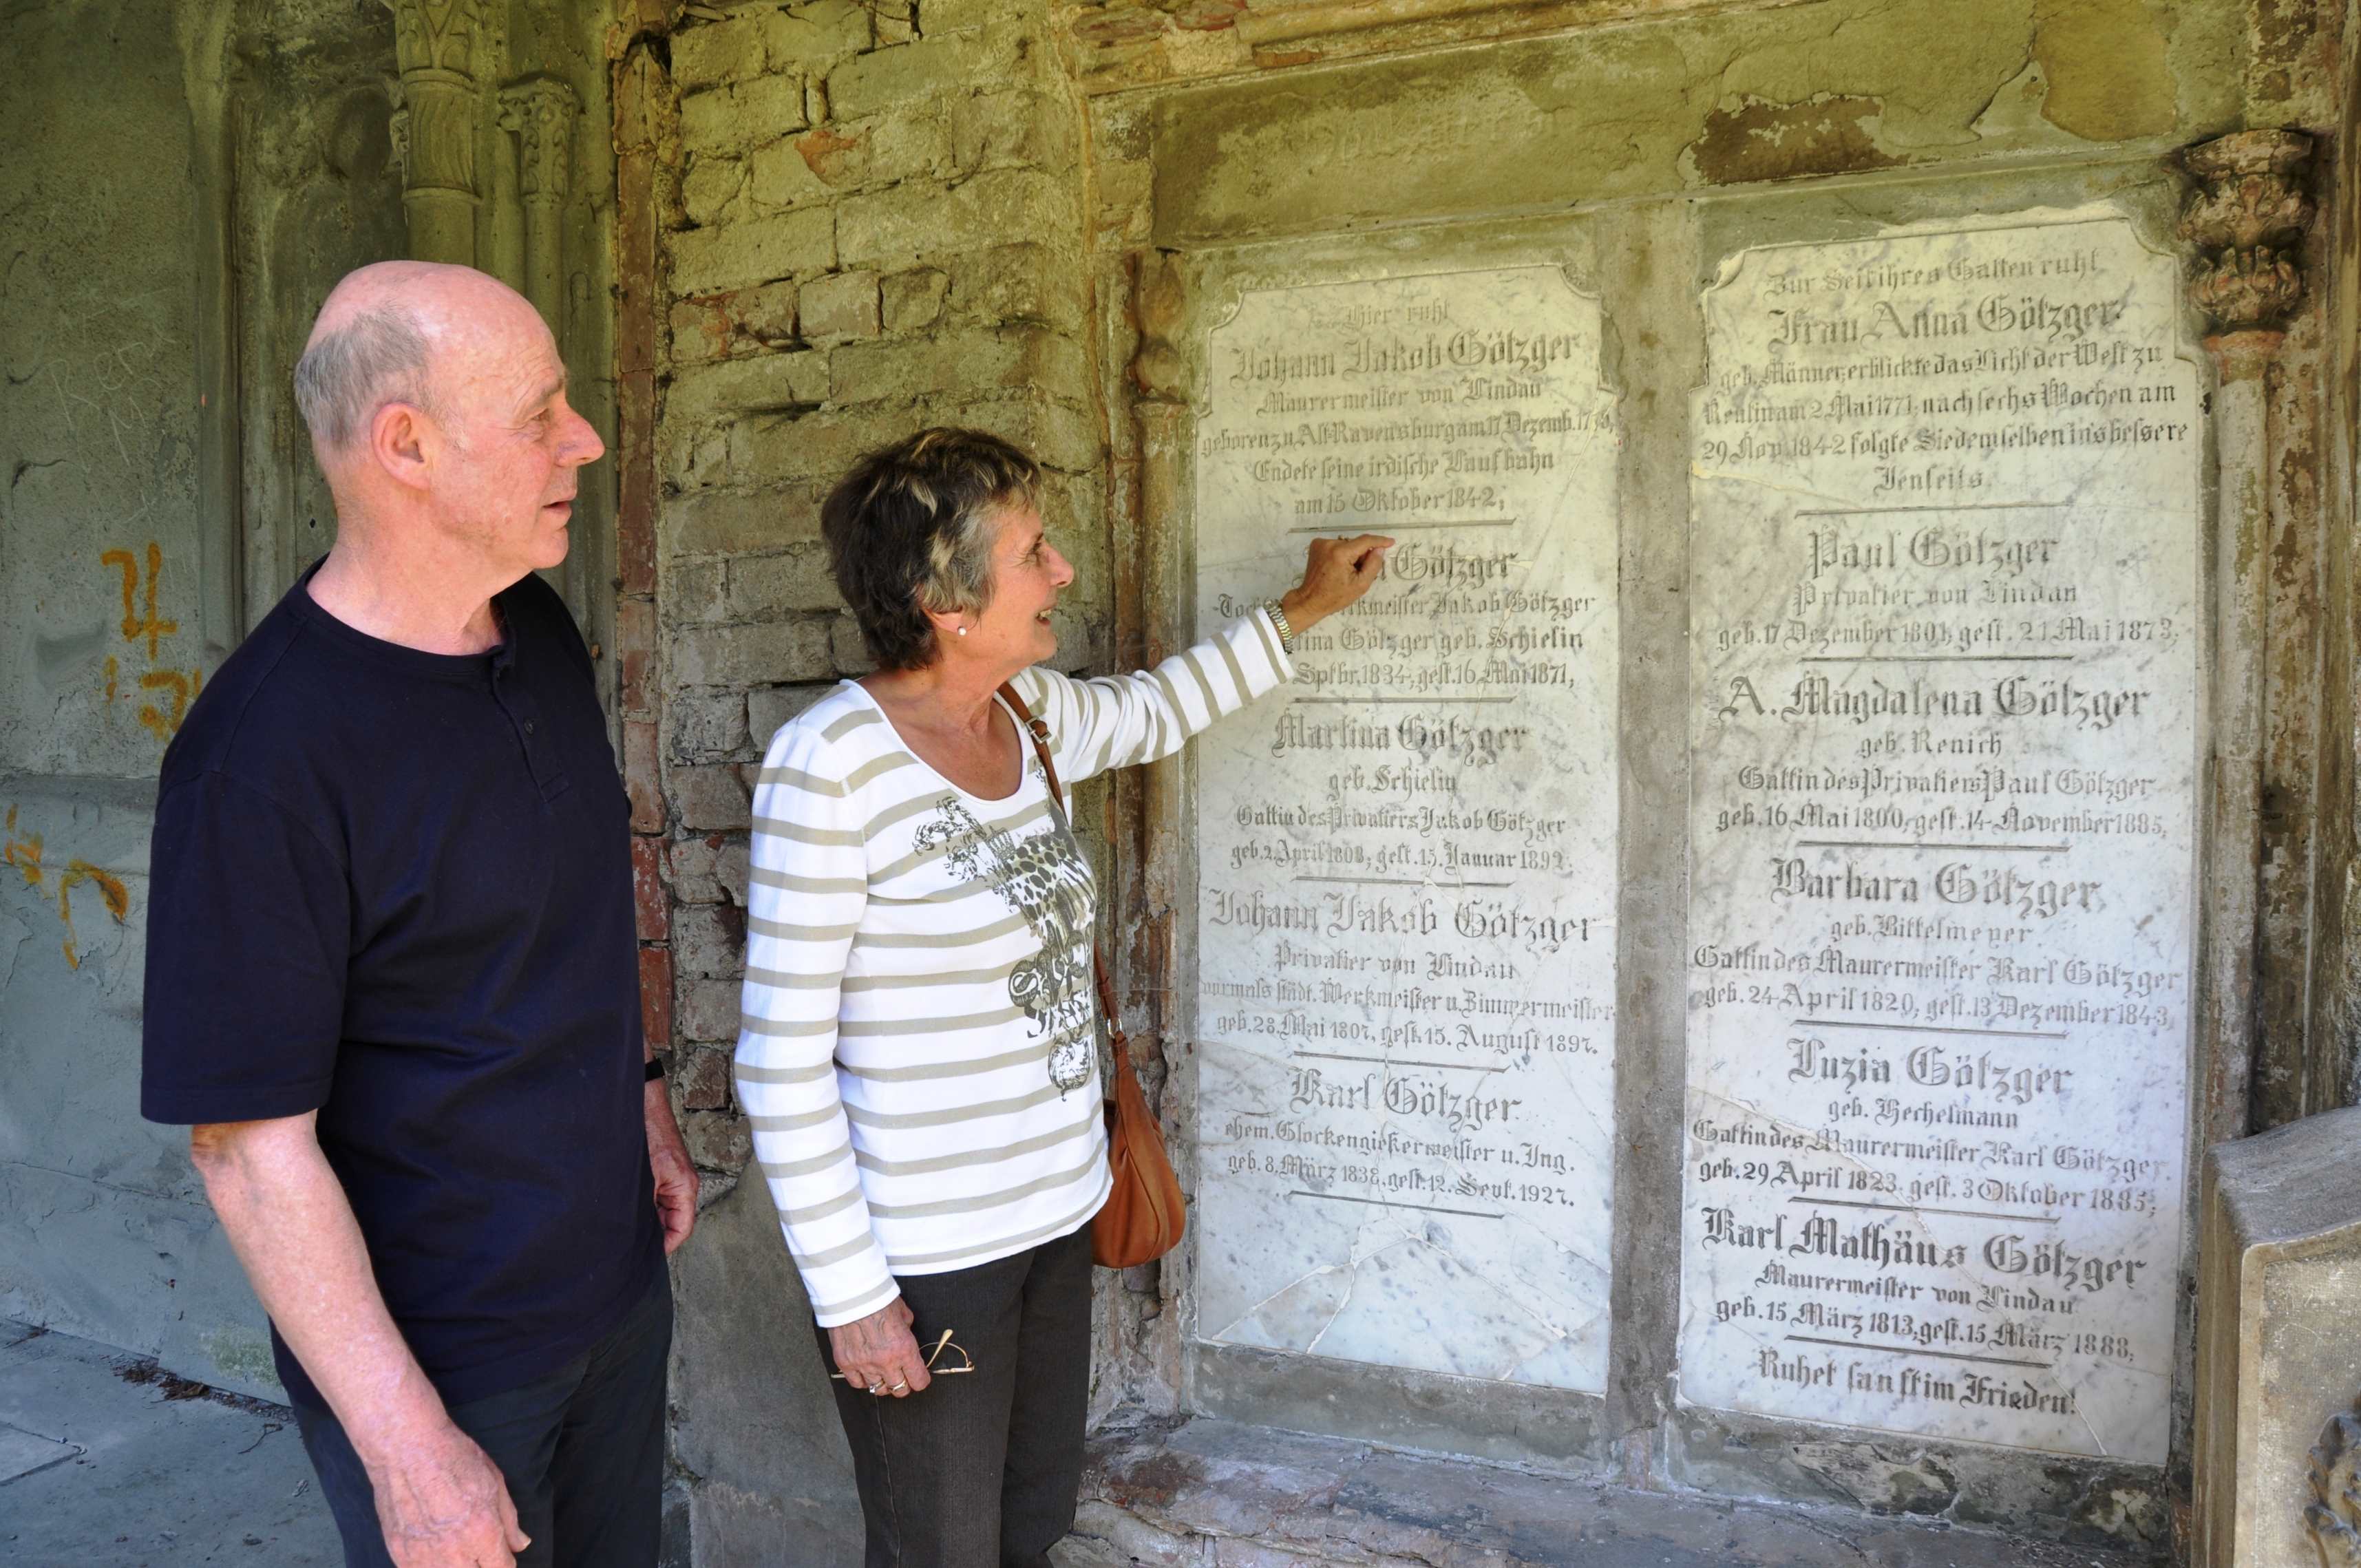 Hier ruht
Johann Jakob Götzger
Maurermeister von Lindau
geboren zu Alt Ravensburg am 17 Dezemb.
Endete seine irdische Laufbahn
am 15 Oktober 1842,
Götzger
Jakob Götzger
Götzger geb. Schielin
Sptbr. 1834, gest. 16 Mai 1871,
Martina Götzger
geb. Schielin
Gattin des Privatiers Jakob Götzger
geb. 2. April 1808, gest. 15. Januar 1892.
Johann Jakob Götzger
Privatier von Lindau
vormals städt. Werkmeister u. Zimmermeister
geb. 28. Mai 1807, gest. 15. August 1897.
Karl Götzger
ehem. Glockengießermeister u. Ing.
geb. 8. März 1838, gest. 12. Sept. 1927.
Zur Seit ihres Gatten ruht
Frau Anna Götzger
geb. Männer, erblickte das Licht der Welt zu
Reutin am 2 Mai 1771, nach sechs Wochen am
29 Nov 1842 folgte Sie demselben ins bessere
Jenseits
Paul Götzger
Privatier von Lindau
geb. 17 Dezember 1801, gest. 21 Mai 1873,
A. Magdalena Götzger
geb. Renich
Gattin des Privatiers Paul Götzger
geb. 16 Mai 1800, gest. 14 November 1885,
Barbara Götzger
geb. Bittelmeyer
Gattin des Maurermeister Karl Götzger
geb. 24 April 1820, gest. 13 Dezember 1843,
Luzia Götzger
geb. Hechelmann
Gattin des Maurermeister Karl Götzger
geb. 29 April 1823 gest. 3 Oktober 1885,
Karl Mathäus Götzger
Maurermeister von Lindau
geb. 15 März 1813, gest. 15 März 1888,
Ruhet sanft im Frieden!